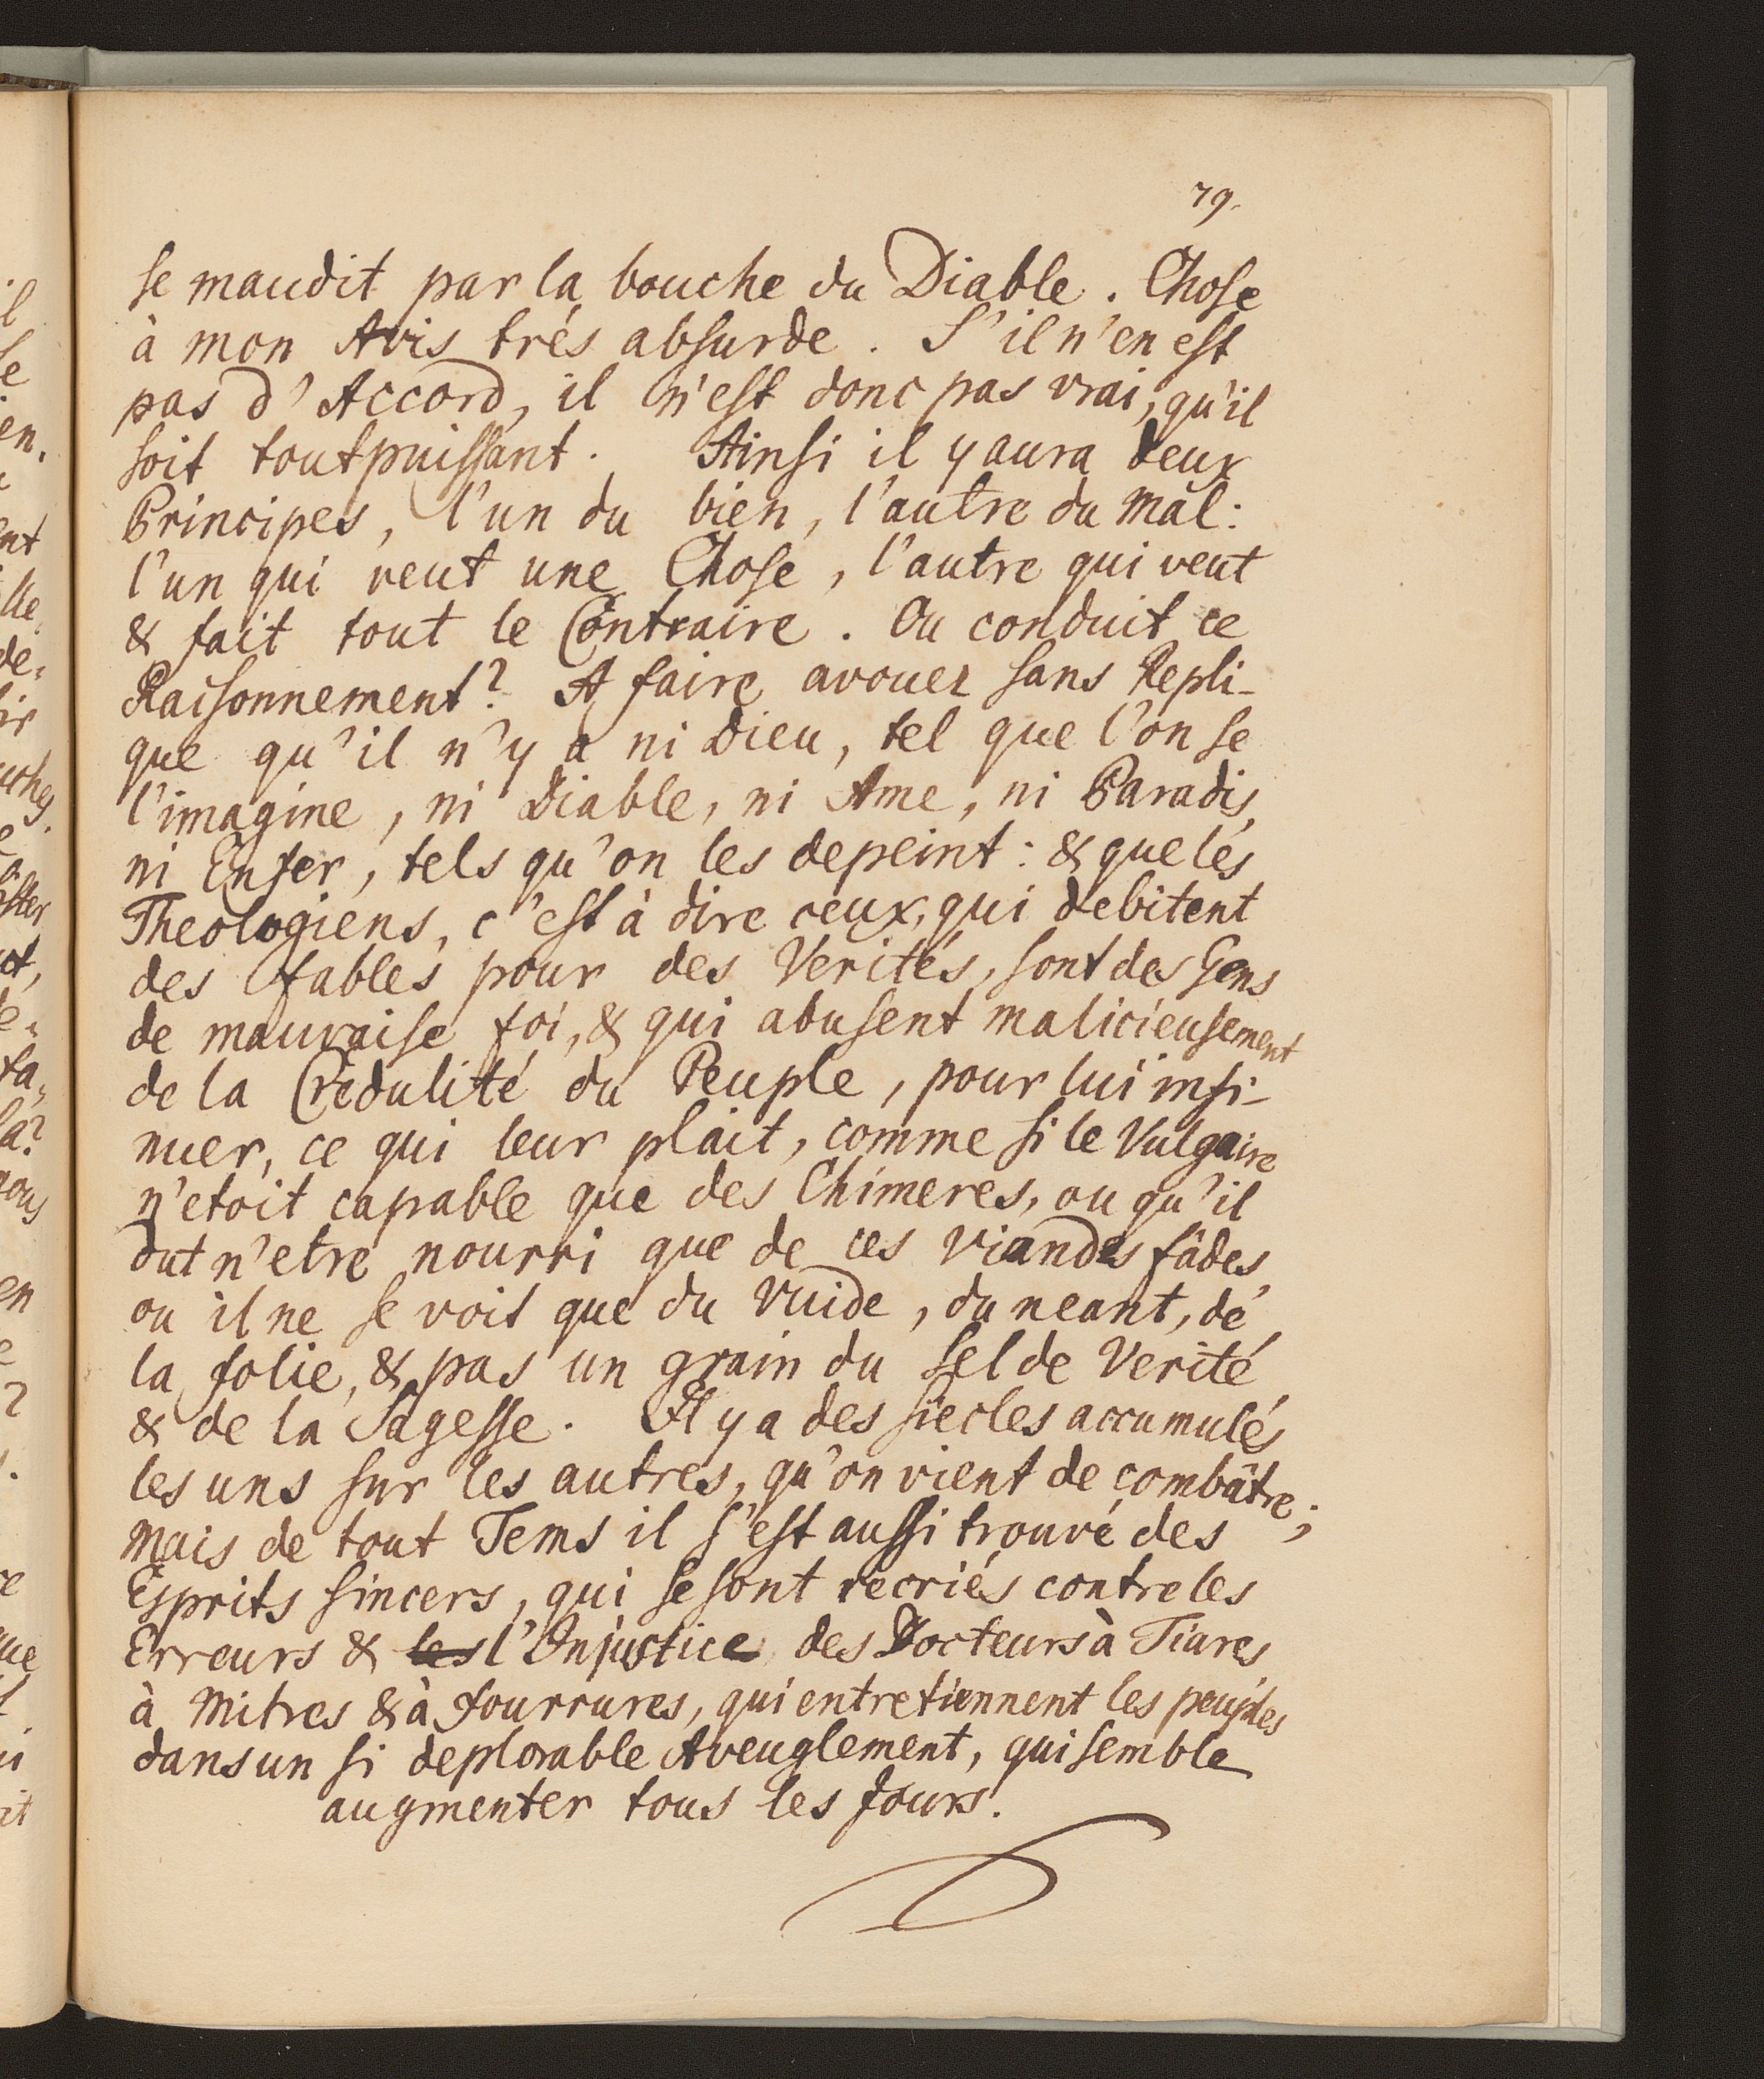 79.
se maudit par la bouche du Diable. Chose
à mon Avis trés absurde. S'il n'en est
pas d'Accord, il n'est donc pas vrai, qu'il
soit toutpuissant. Ainsi il y aura deux
Principes, l'un du bien, l'autre du mal:
l'un qui veut une Chose, l'autre qui veut
& fait tout le Contraire. Ou conduit ce
Raisonnement? A faire avouer sans Repli-
que qu'il n'y a ni Dieu, tel que l'on se
l'imagine, ni Diable, ni Ame, ni Paradis,
ni Enfer, tels qu'on les depeint: & que les
Theologiens, c'est à dire ceux, qui debitent
des fables pour des Verités, sont des Gens
de mauvaise foi, & qui abusent malicieusement
de la Credulité du Peuple, pour lui insi-
nuer, ce qui leur plait, comme si le Vulgaire
n'etoit capable que des Chimeres, ou qu'il
dut n'etre nourri que de ces viandes fâdes,
ou il ne se voit que du vuide, du neant, de
la folie, & pas un grain du sel de Verité
& de la Sagesse. Il y a des siecles accumulés
les uns sur les autres, qu'on vient de combâtre;
mais de tout Tems il s'est aussi trouvé des
Esprits sincers, qui se sont recriés contre les
Erreurs & les l'Injustice des Docteurs à Tiares,
à Mitres & à fourrures, qui entretiennent les peuples
dans un si deplorable Aveuglement, qui semble
augmenter tous les Jours.